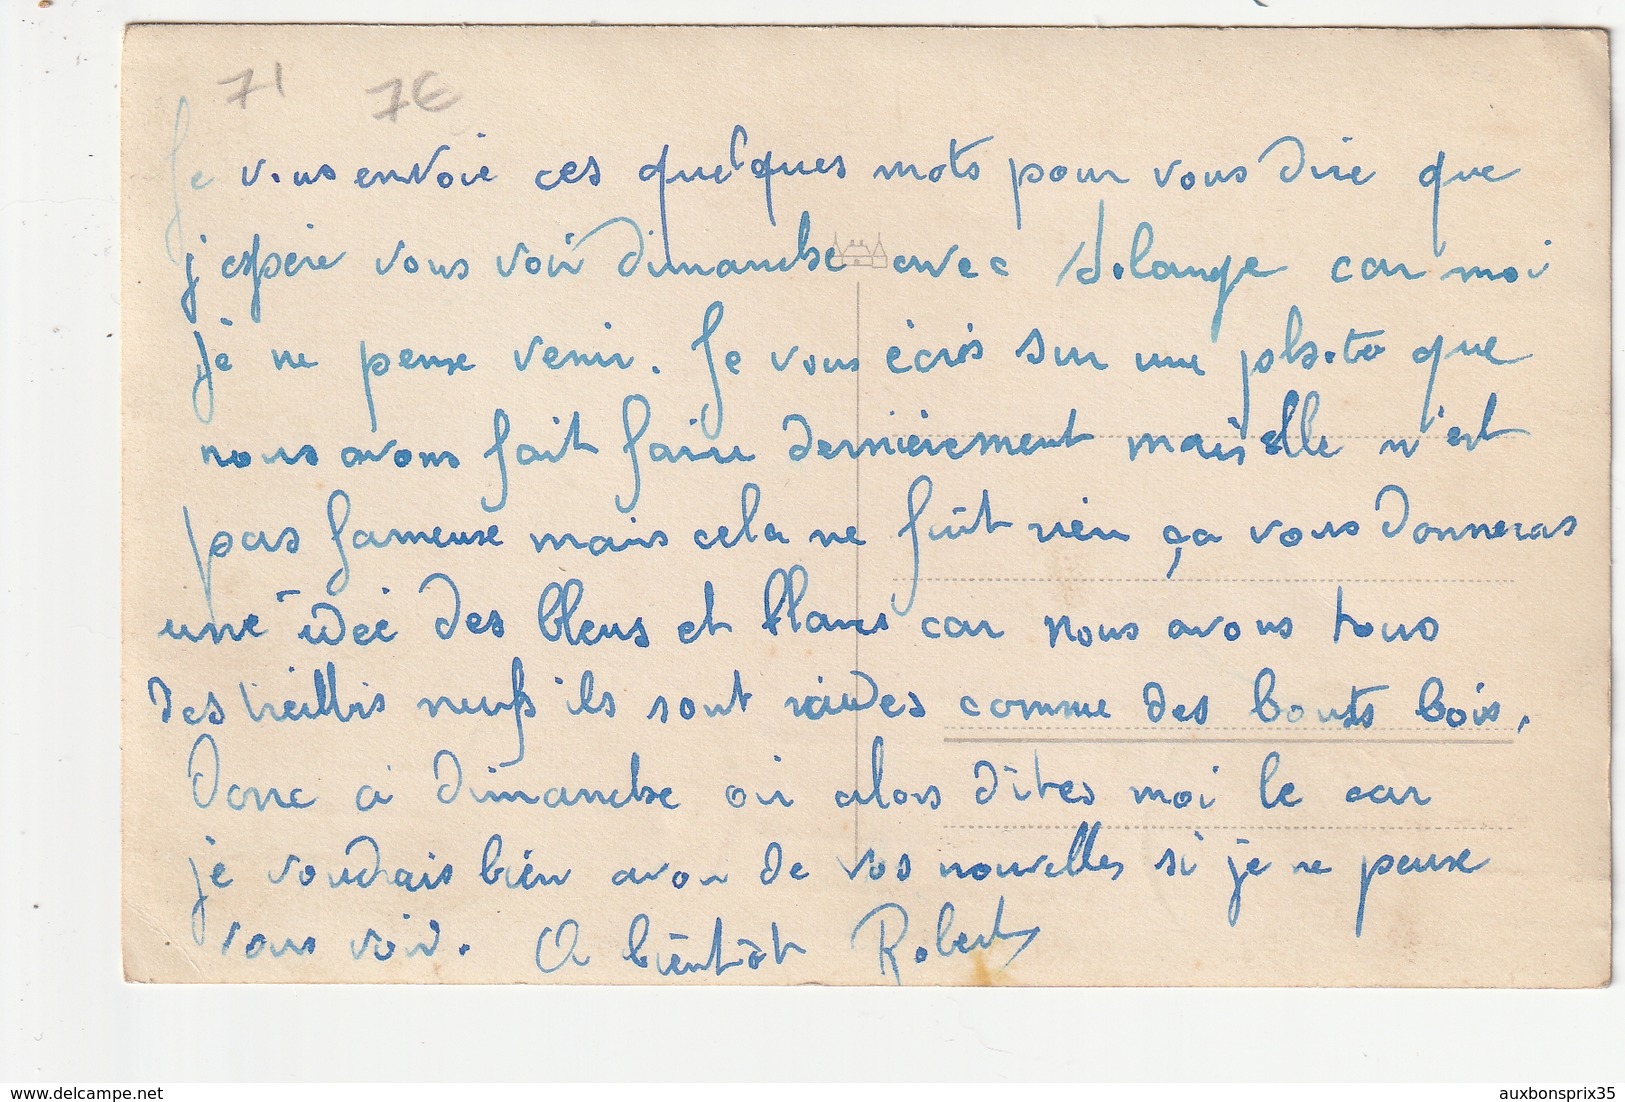 71 7€
Je vous envoie ces quelques mots pour vous dire que
j'espère vous voir dimanche avec Solange car moi
je ne peux venir. Je vous écris sur une photo que
nous avons fait faire dernièrement mais elle n'est
pas fameuse mais cela ne fait rien ça vous donneras
une idée des bleus et blancs car nous avons tous
des treillis neufs ils sont raides comme des bouts bois.
Donc à dimanche ou alors dites moi le car
je voudrais bien avoir de vos nouvelles si je ne peux
vous voir. A bientôt Robert
www.delcampe.net
auxbonsprix35